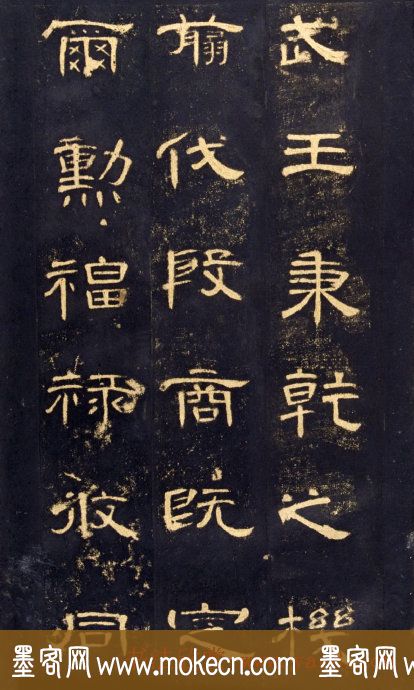 武王秉乾之機
翦伐殷商既定
爾勳福祿攸同
墨客网 www.mokecn.com 墨客网